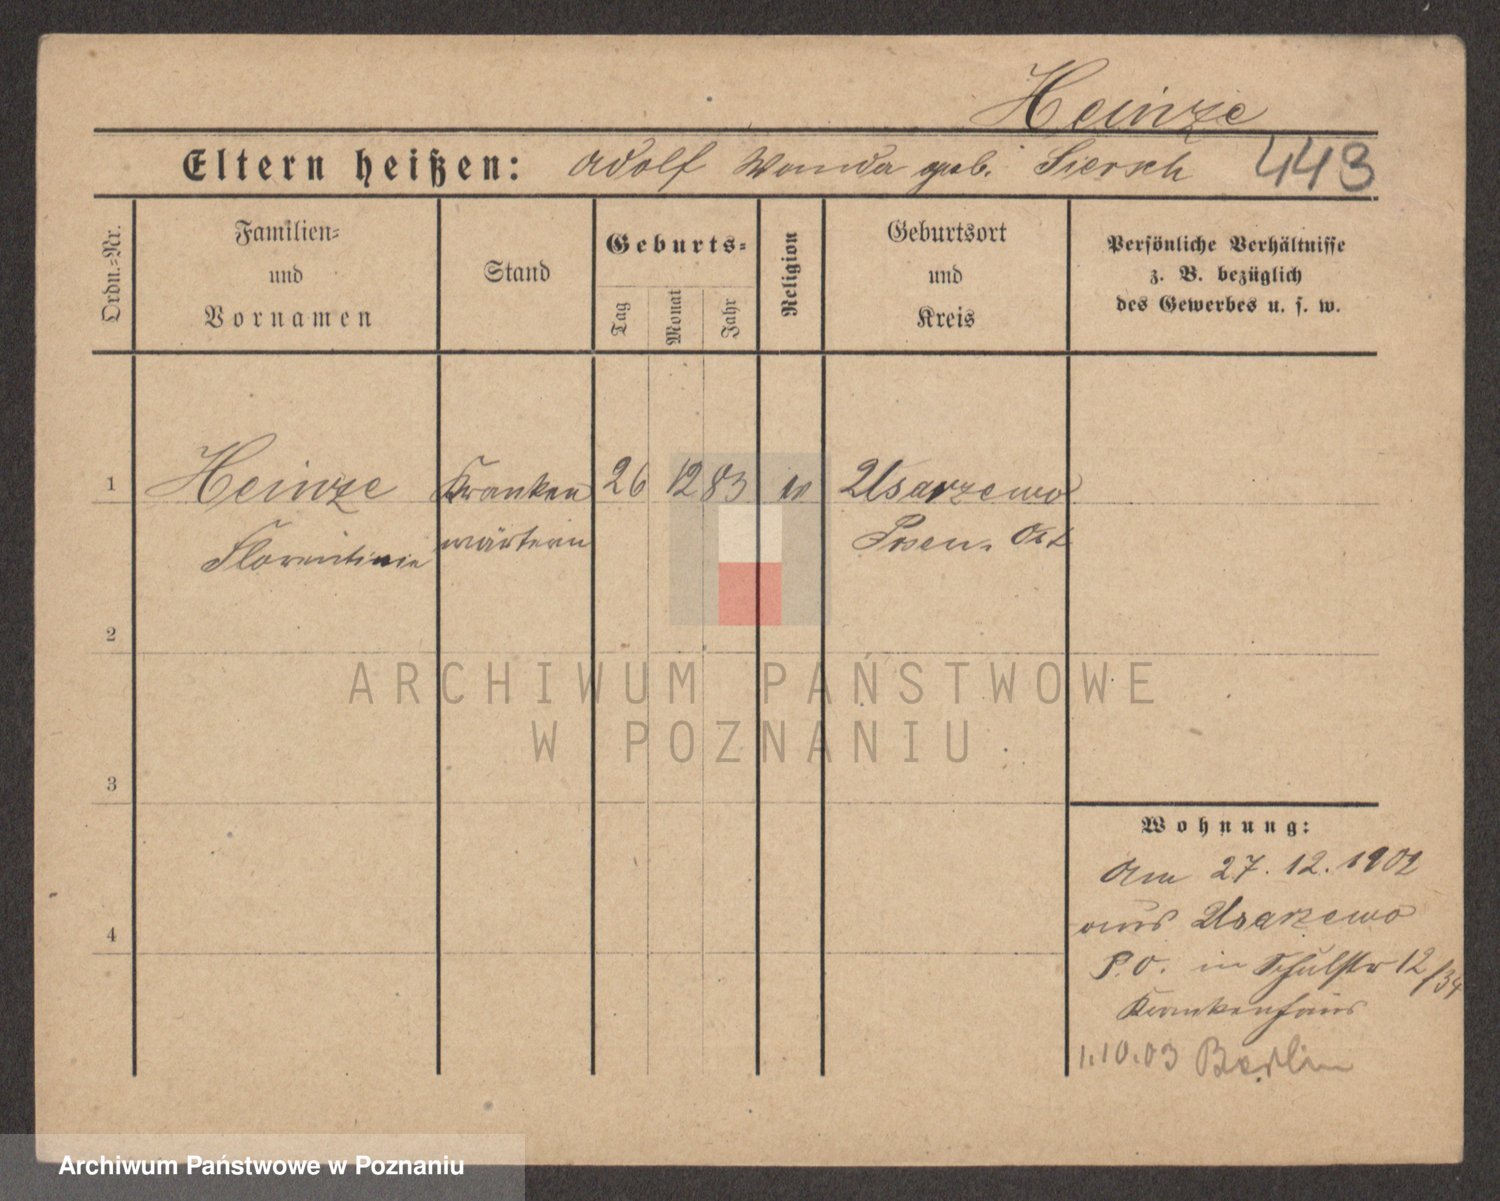 Heinze
Eltern heißen: Adolf Wanda geb. Siersch 443
Ordn.-Nr.
Familien-
und
Vornamen
Stand
Geburts-
Tag
Monat
Jahr
Religion
Geburtsort
und
Kreis
Persönliche Verhältnisse
z. B. bezüglich
des Gewerbes u. s. w.
1 Heinze Kranken 26 12 83 ev Usarzewo
Florentine wärterin Posen-Ost
2
3
4
ARCHIWUM PAŃSTWOWE
W POZNANIU
Wohnung:
Am 27. 12. 1902
aus Usarzewo
P.O. in Schulstr 12/34
Krankenhaus
1.10.03 Berlin
Archiwum Państwowe w Poznaniu